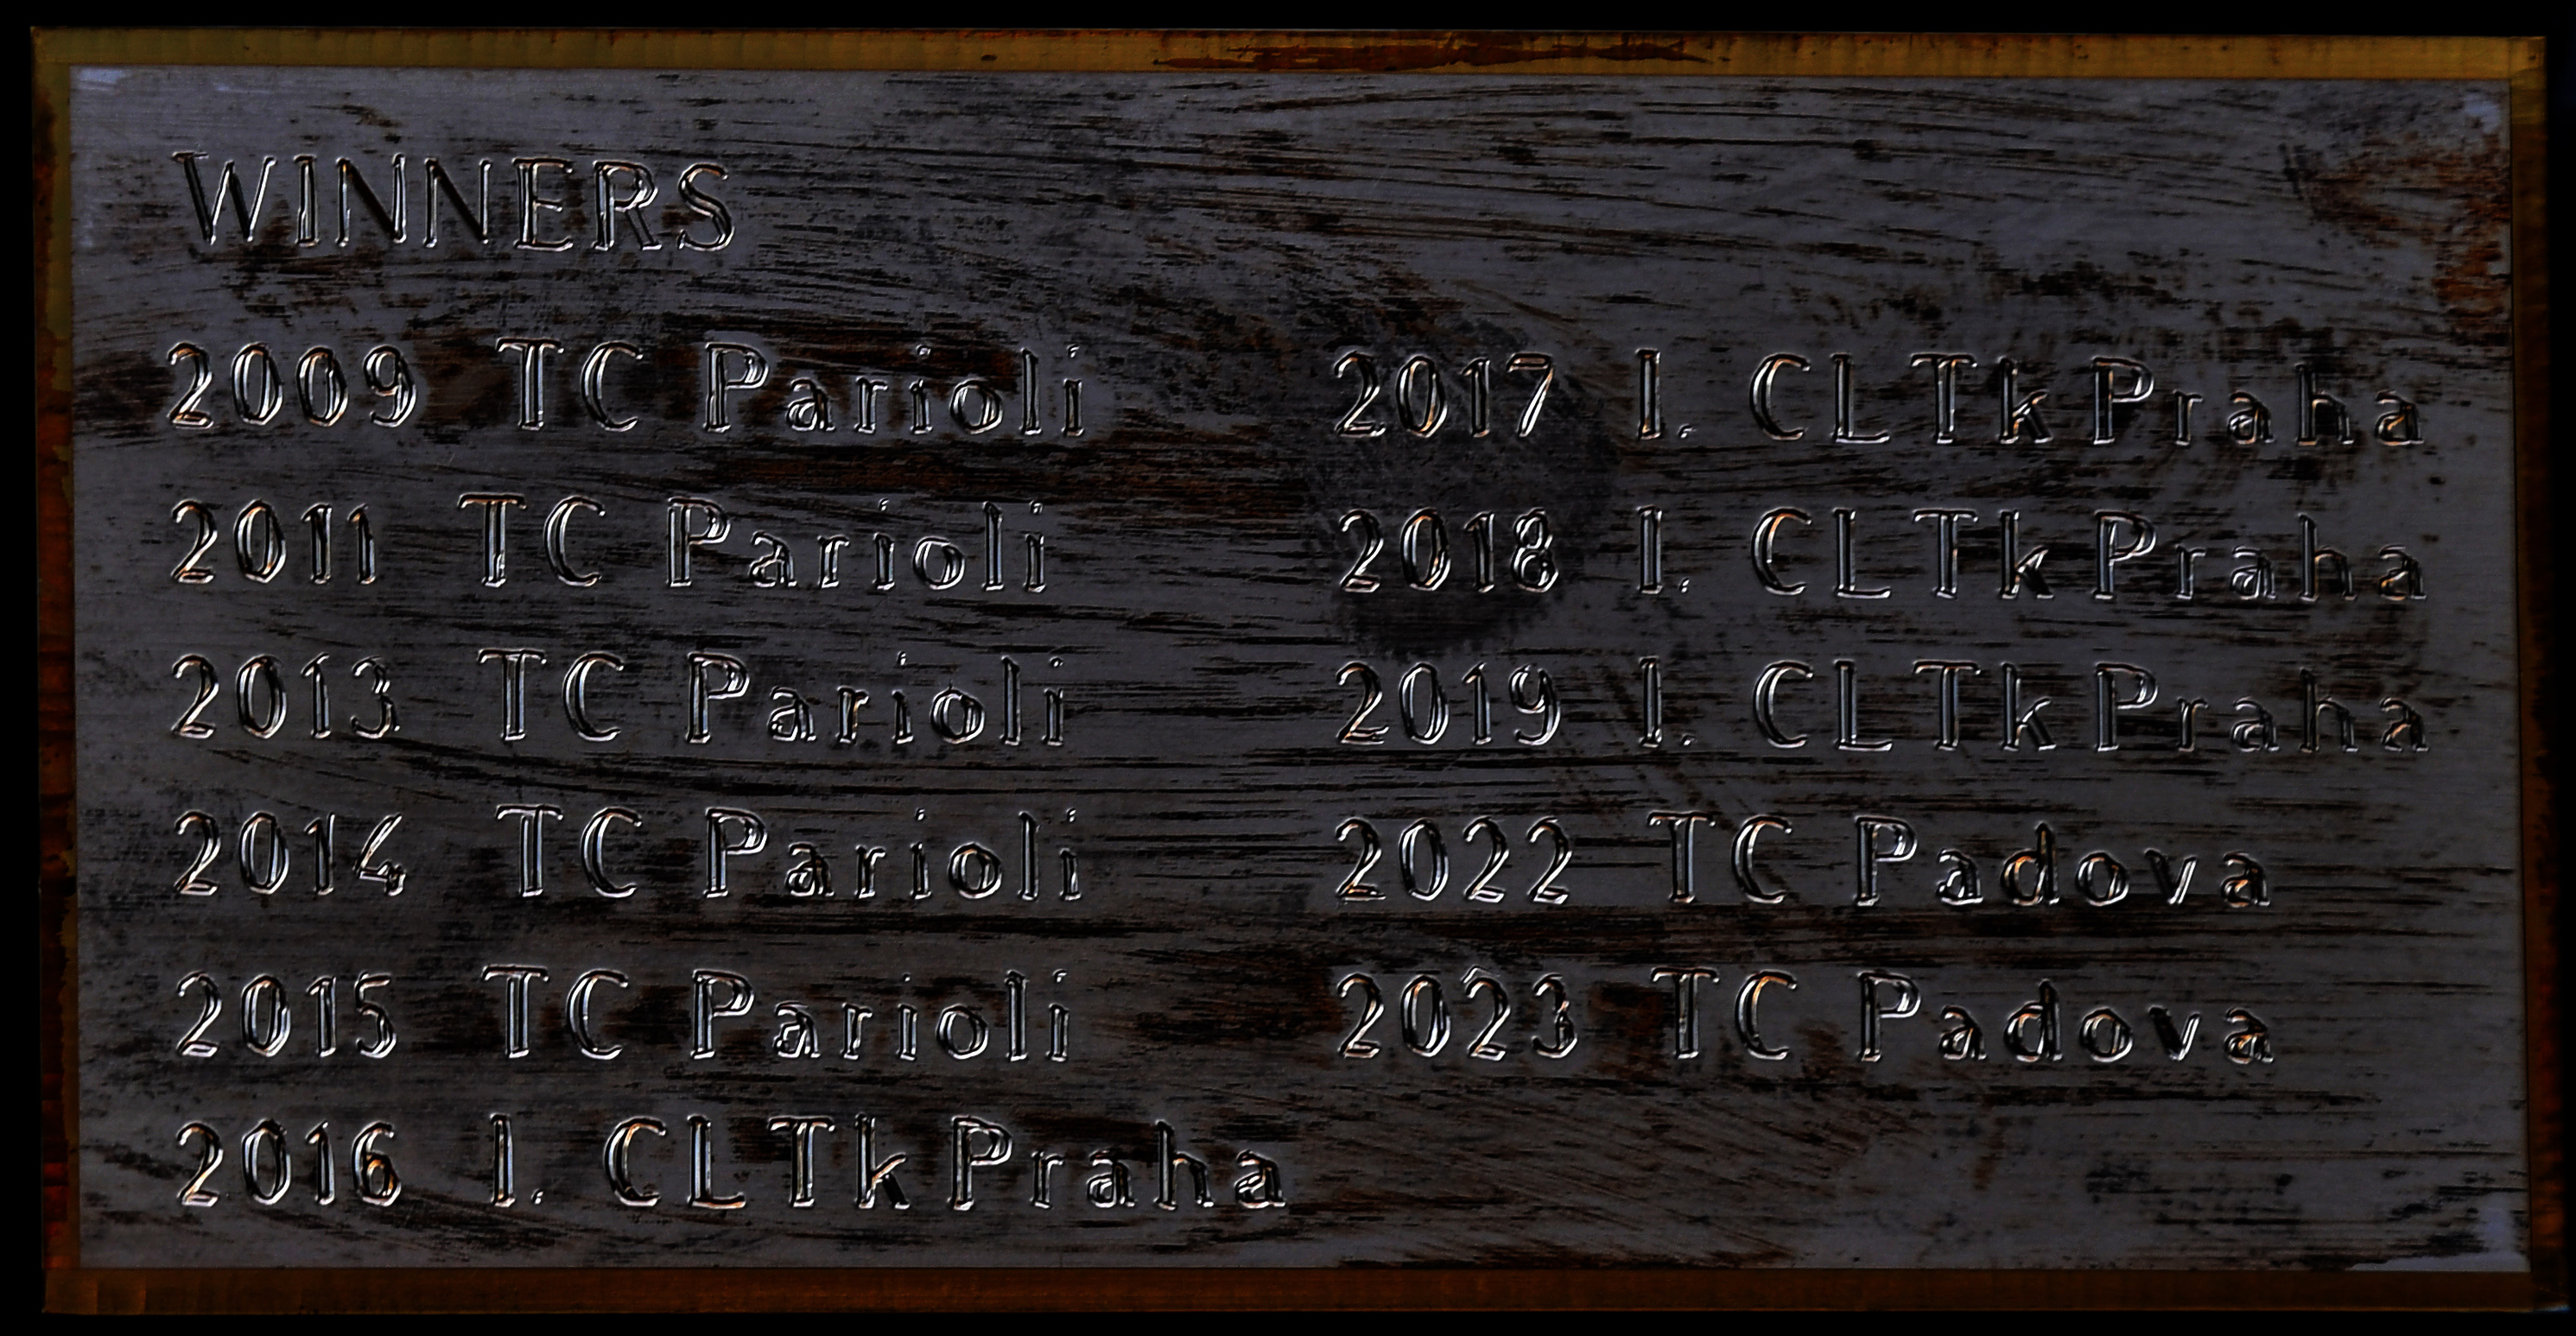 WINNERS
2009 TC Parioli
2011 TC Parioli
2013 TC Parioli
2014 TC Parioli
2015 TC Parioli
2016 I. CLTk Praha
2017 I. CLTk Praha
2018 I. CLTk Praha
2019 I. CLTk Praha
2022 TC Padova
2023 TC Padova